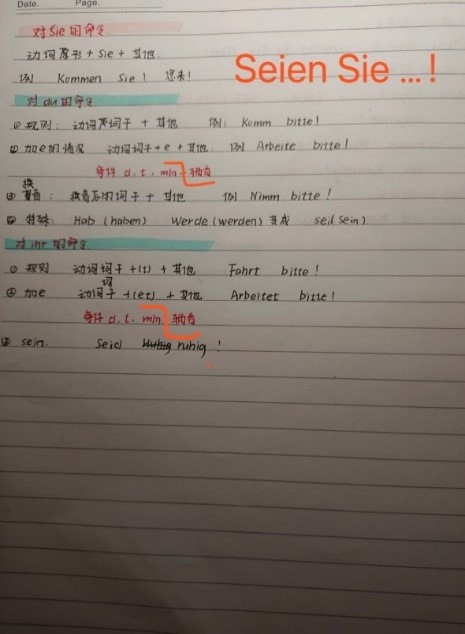 Date. Page.
对 Sie 的命令
动词原形 + Sie + 其他.
例 Kommen Sie! 您来!
Seien Sie ...!
对 du 的命令
① 规则: 动词词干 + 其他 例: Komm bitte!
② 加e的情况 动词词干+e + 其他. 例 Arbeite bitte!
条件 d.t. m/n 辅音
换
③ 变音: 换音后的词干 + 其他 例 Nimm bitte!
④ 特殊: Hab (haben) Werde (werden) 变成 sei(sein)
对 ihr 的命令
① 规则 动词词干 +(t) + 其他 Fahrt bitte!
② 加e 动词干 +(et) + 其他 Arbeitet bitte!
条件 d.t. m/n 辅音
③ sein. Seid ruhig!